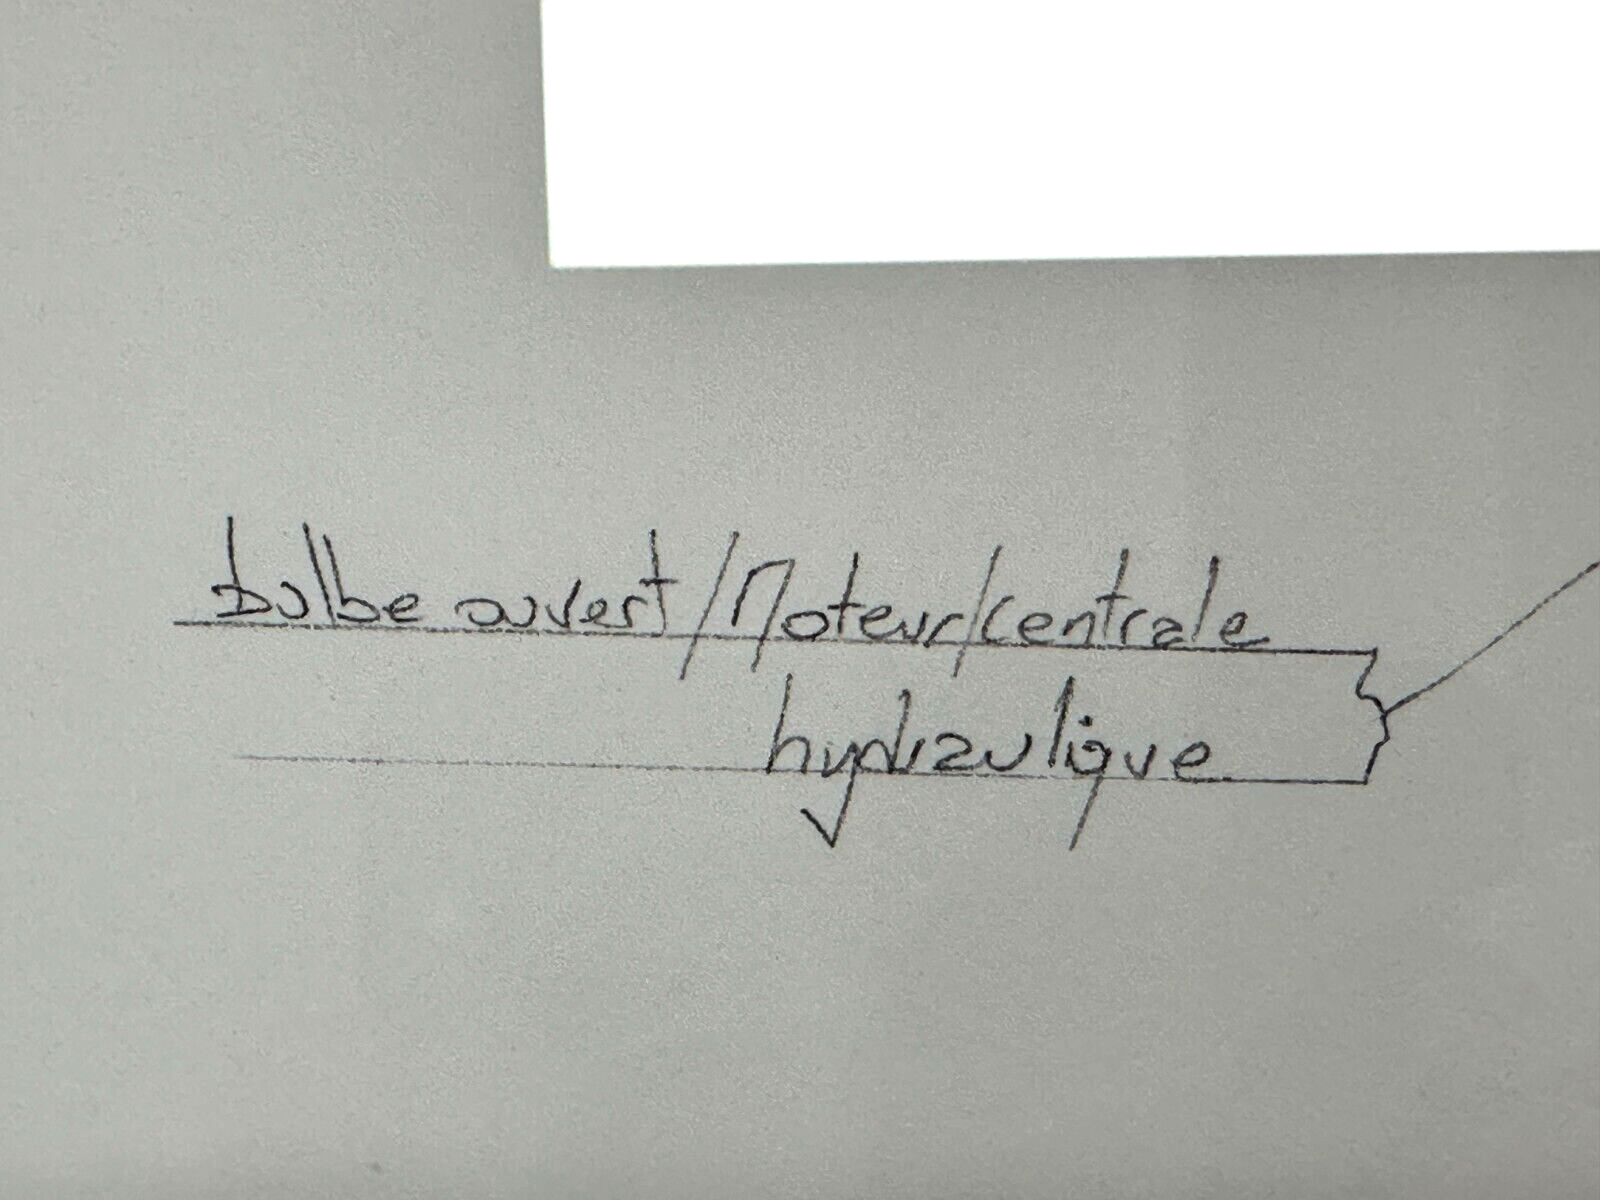 bulbe ouvert/Moteur/centrale
hydraulique